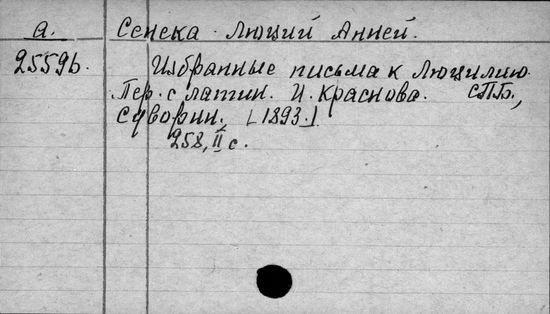 а. Сенека Люций Анней.
25596. Избранные письма к Люцилию.
Пер. с латин. П. Краснова. СПБ.,
Суворин, [1893.]
258, II с.